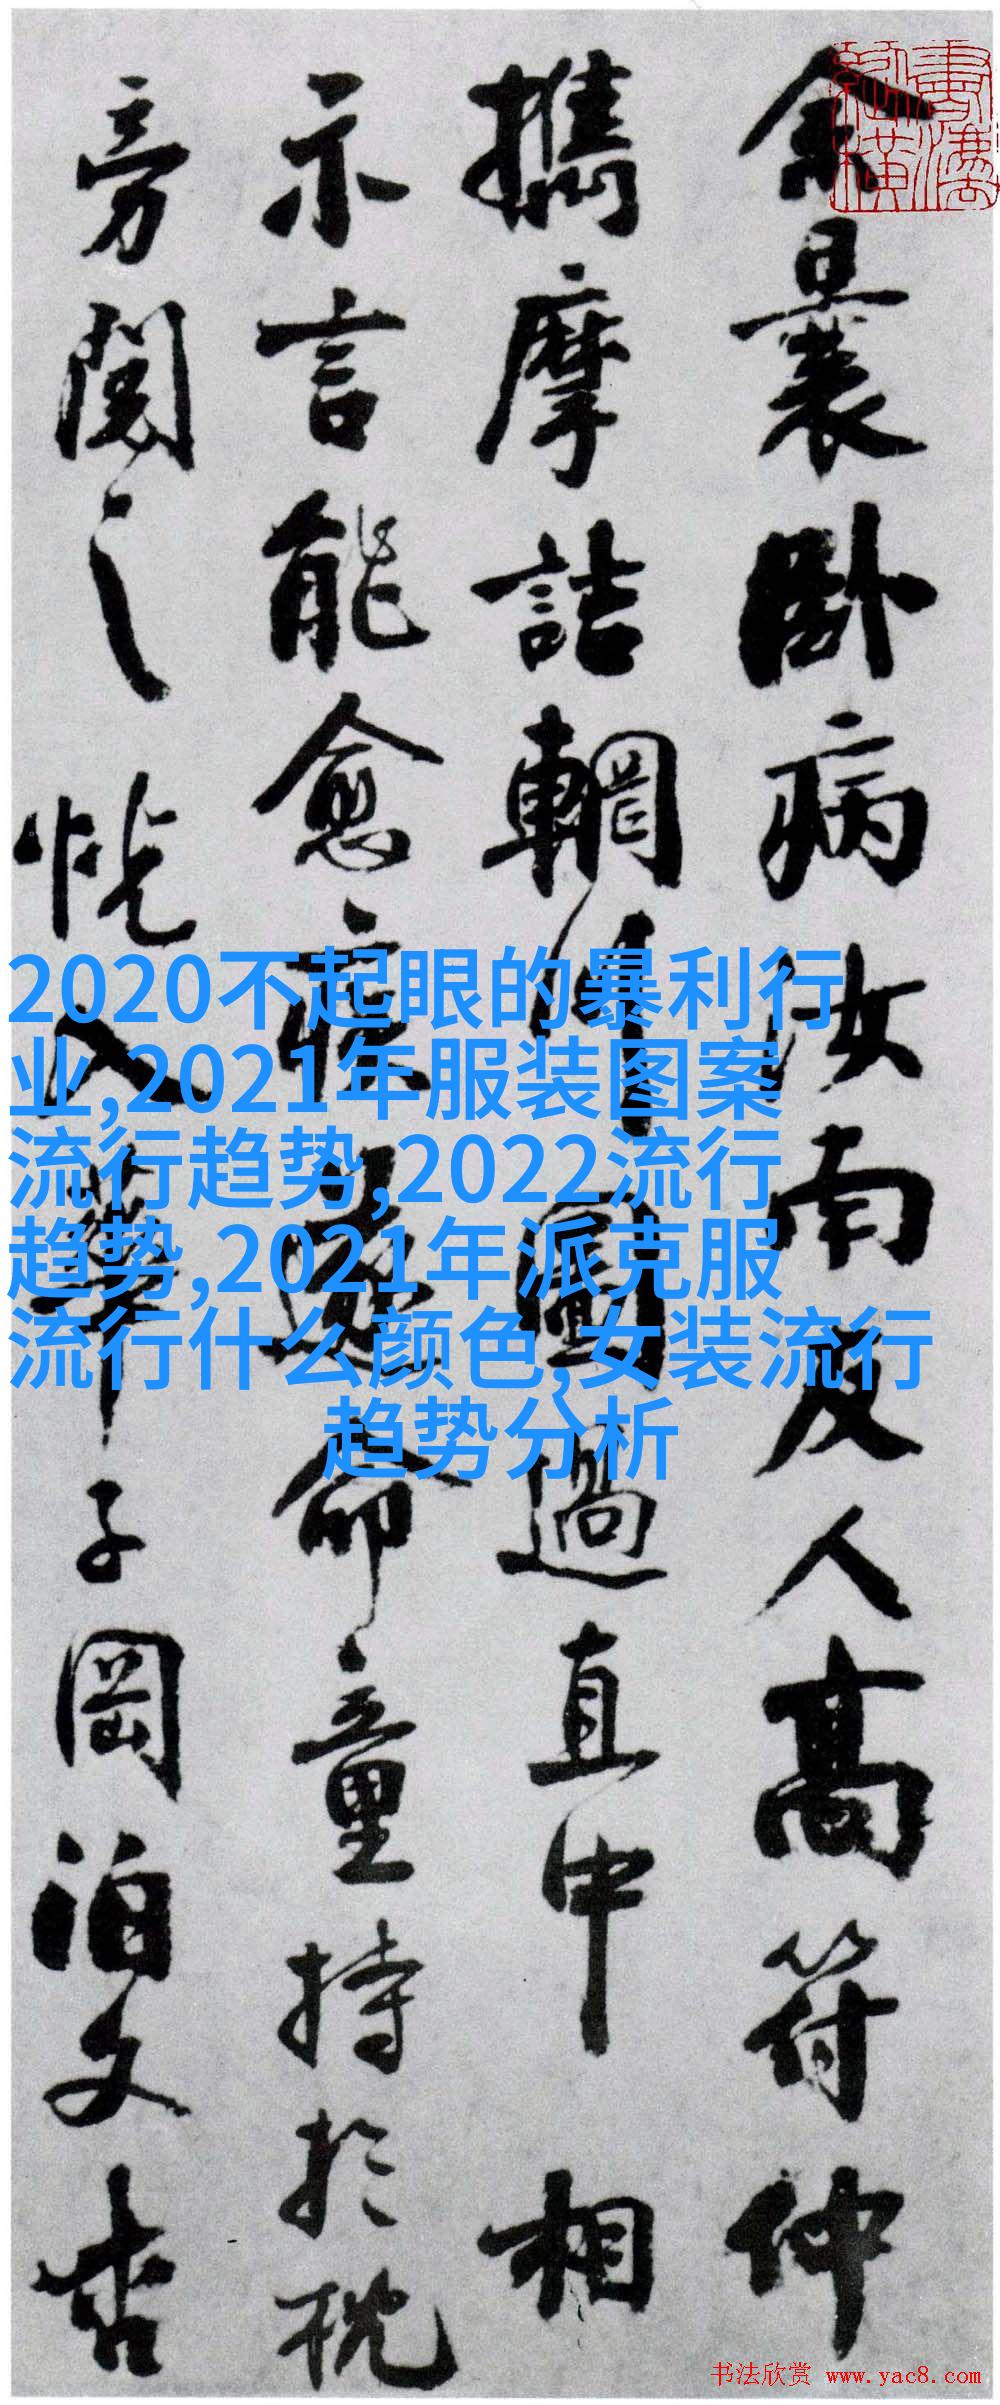 余曩卧病汝南友人高符仲
攜摩詰輞川圖過直中相
示言能愈疾遂命童持於枕
旁閱之恍入華子岡泊文杏
2020不起眼的暴利行
业,2021年服装图案
流行趋势,2022流行
趋势,2021年派克服
流行什么颜色,女装流行
趋势分析
书法欣赏 www.yac8.com